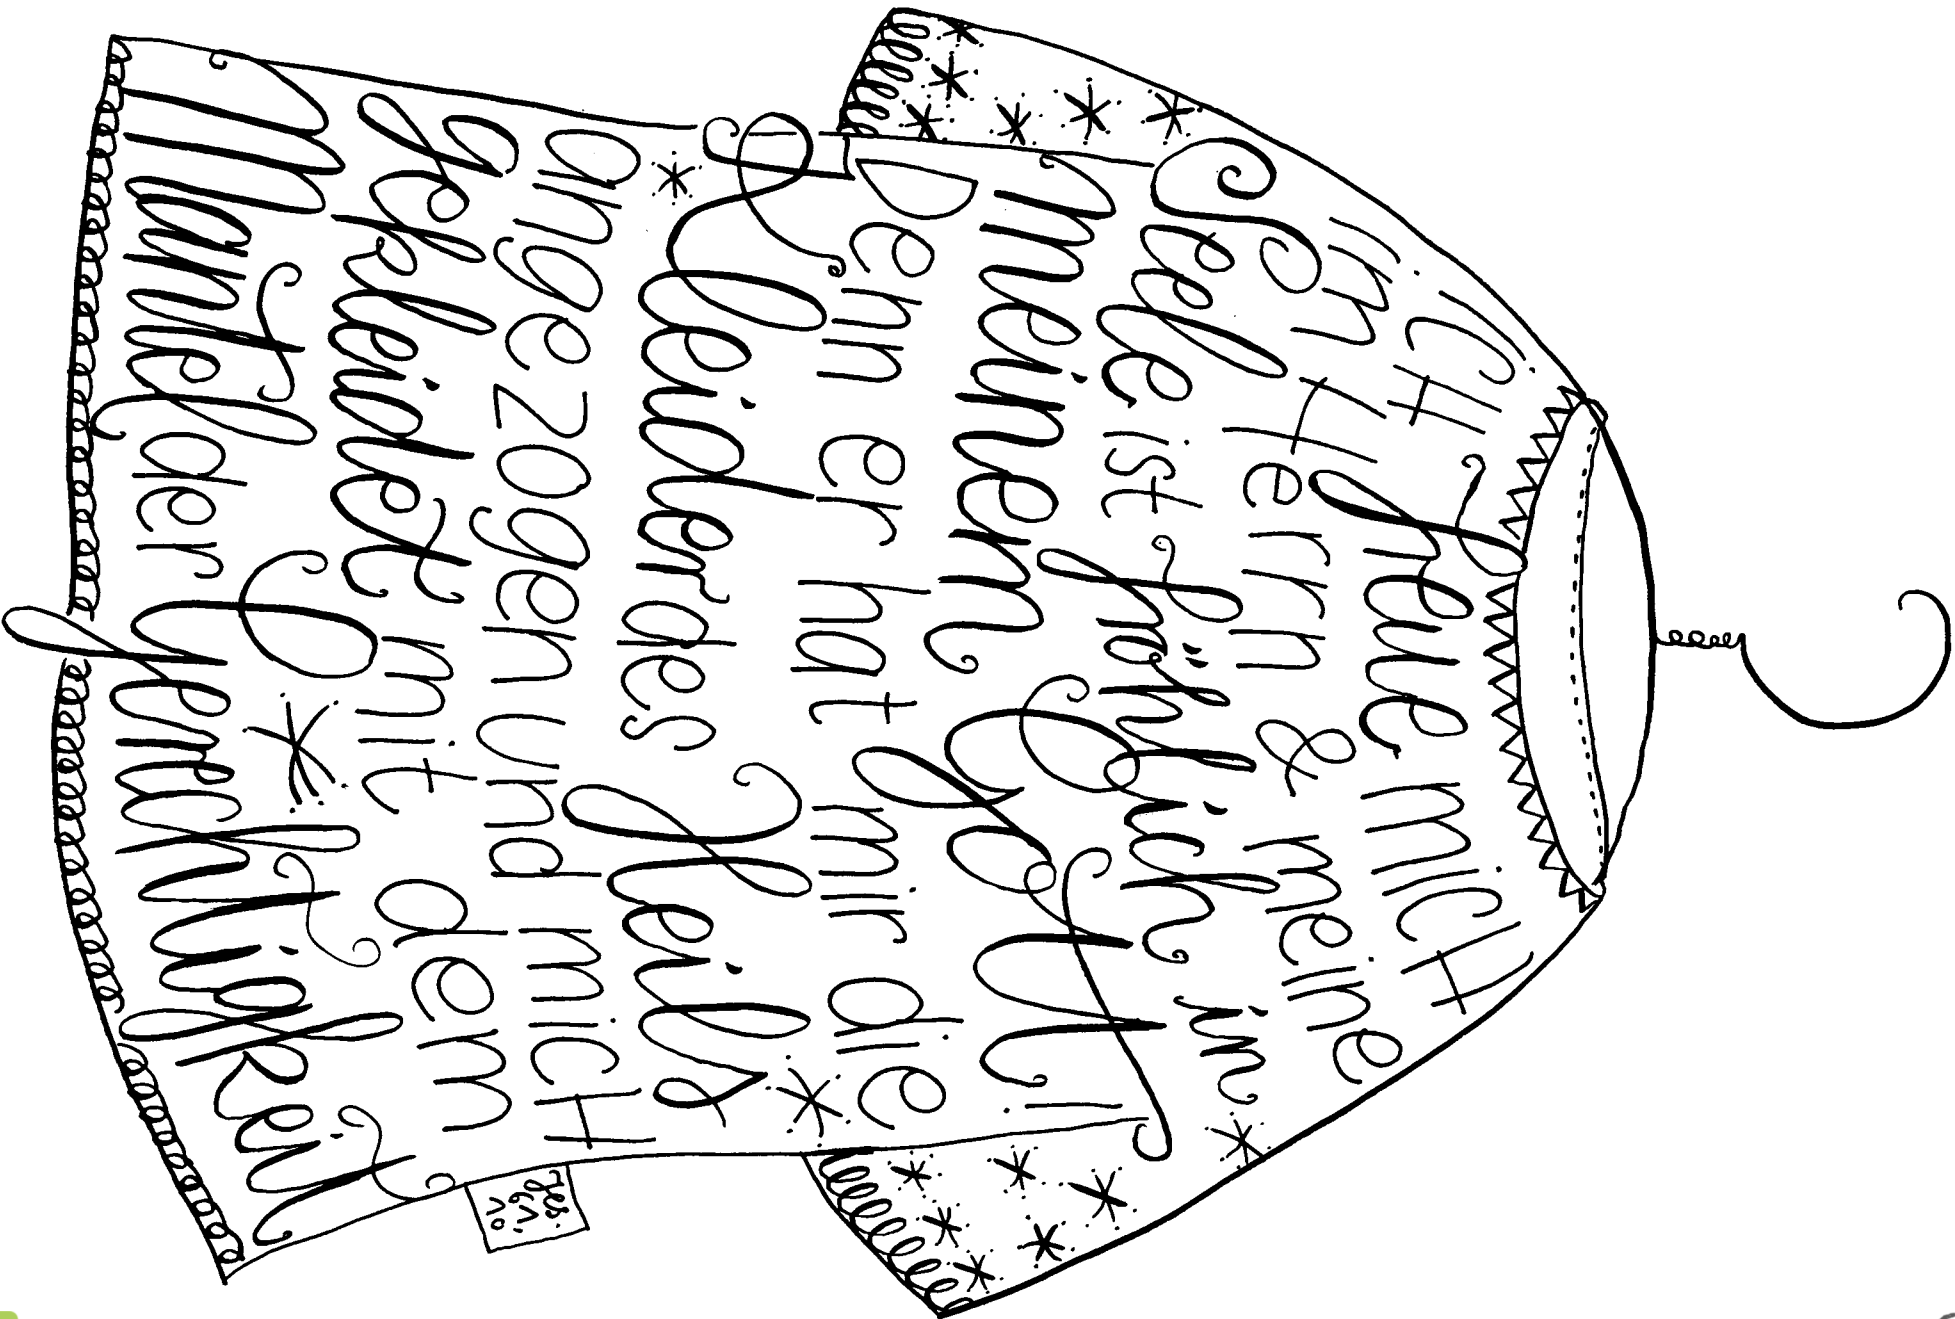 ICH freue mICH
im Herrn & meine
Seele ist fröhlich in
meinem Gott!
Denn er hat mir die
Kleider des Heils
angezogen und mICH
gekleidet mit dem
Mantel der Gerechtigkeit
Jes.
61,
10